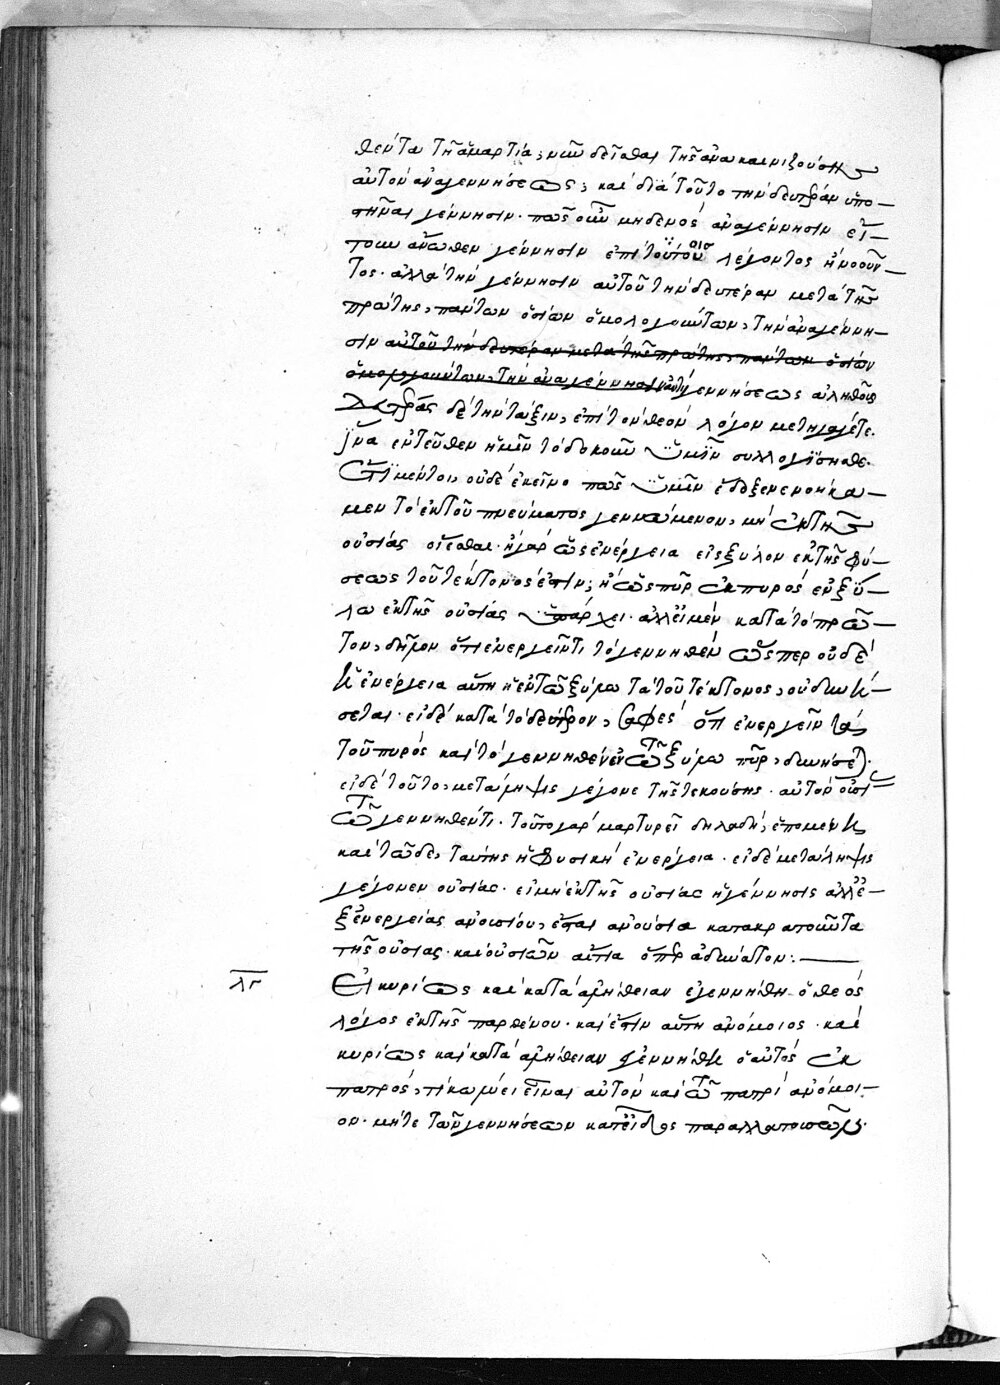 θέντα τῆ ἁμαρτία; νῦν δεῖσθαι τῆς ἄνω καινιζούσης
αὐτὸν ἀναγεννήσεως; καὶ διὰ τοῦτο τὴν δευτέραν ὑπο-
στῆναι γέννησιν. πῶς οὖν μηδενὸς ἀναγέννησιν εἴ-
τουν ἄνωθεν γέννησιν ἐπὶ τούτου λέγοντος ἢ νοοῦν-
τος. ἀλλὰ τὴν γέννησιν αὐτοῦ τὴν δευτέραν μετὰ τῆς
πρώτης, πάντων ὁσίων ὁμολογούντων, τὴν ἀναγέννη-
σιν αὐτοῦ τὴν δευτέραν μετὰ τῆς πρώτης, πάντων ὁσίων
ὁμολογούντων, τὴν ἀναγέννησιν ἀντὶ γεννήσεως ἀληθοῦς
δευτέρας δὲ τὴν τάξιν, ἐπὶ τὸν θεὸν λόγον μετηγάγετε.
ἵνα ἐντεῦθεν ἡμῖν τὸ δοκοῦν ὑμῖν συλλογίσησθε.
ἔτι μέντοι, οὐδὲ ἐκεῖνο πῶς ὑμῖν ἔδοξεν ἐνοήσα-
μεν τὸ ἐκ τοῦ πνεύματος γεννώμενον, μὴ ἐκ τῆς
οὐσίας οἴεσθαι. ἢ γὰρ ὡς ἐνέργεια εἰς ξύλον ἐκ τῆς φύ-
σεως τοῦ τέκτονος ἐστιν; ἢ ὡς πῦρ ἐκ πυρὸς ἐν ξύ-
λω ἐκ τῆς οὐσίας ὑπάρχει. ἀλλ' εἰ μὲν κατὰ τὸ πρῶ-
τον, δῆλον ὅτι ἐνεργεῖν τι τὸ γεννηθὲν ὥσπερ οὐδὲ
ἡ ἐνέργεια αὕτη ἡ ἐν τῶ ξύλω τὰ τοῦ τέκτονος, οὐ δυνή-
σεται. εἰ δὲ κατὰ τὸ δεύτερον, σαφὲς ὅτι ἐνεργεῖν τὰ
τοῦ πυρὸς καὶ τὸ γεννηθὲν ἐν τῶ ξύλω πῦρ, δυνήσεται.
εἰ δὲ τοῦτο, μετάληψις γέγονε τῆς τεκούσης. αὐτὸν οὐσί-
τῶ γεννηθέντι. τοῦτο γὰρ μαρτυρεῖ δηλαδὴ, ἑπομένη
καὶ τῶδε, ταύτης ἡ φυσικὴ ἐνέργεια. εἰ δὲ μετάληψις
γέγονεν οὐσίας. εἰ μὴ ἐκ τῆς οὐσίας ἡ γέννησις ἀλλ' ἐ-
ξ ἐνεργείας ἀνουσίου, ἔσται ἀνούσια κατακρατοῦντα
τῆς οὐσίας. καὶ οὐσιῶν αἴτια ὅπερ ἀδύνατον:
λγ
Εἰ κυρίως καὶ κατὰ ἀλήθειαν ἐγεννήθη ὁ θεὸς
λόγος ἐκ τῆς παρθένου. καὶ ἔστιν αὐτῇ ἀνόμοιος. καὶ
κυρίως καὶ κατὰ ἀλήθειαν γεννηθῆ ὁ αὐτὸς ἐκ
πατρὸς, τί κωλύει εἶναι αὐτὸν καὶ τῶ πατρὶ ἀνόμοι-
ον. μήτε τῶν γεννήσεων κατ' εἶδος παραλλαττουσῶν.